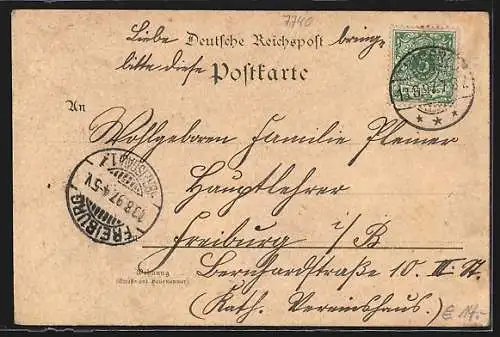 7740
Liebe Deutsche Reichspost bringe
bitte diese Postkarte
An
Wollgeboren Familie
Hauptlehrer
Freiburg i/B
Wohnung
(Straße und Hausnummer)
Bernhardstraße 10. III. St.
(Kath. Vereinshaus.)
€ 14.-
5
FREIBURG
13.8.97.4-5V.